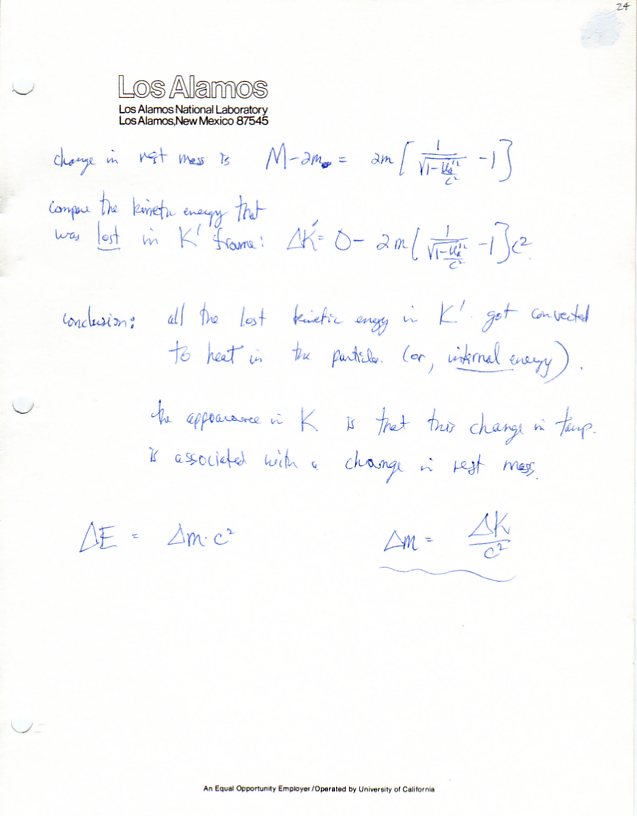 24
Los Alamos
Los Alamos National Laboratory
Los Alamos, New Mexico 87545
change in rest mass is M-2m₀ = 2m [ 1/√(1-u₀'²/c²) -1 ]
compare the kinetic energy that
was lost in K' frame: ΔK' = 0 - 2m [ 1/√(1-u₀'²/c²) -1 ] c²
conclusion: all the lost kinetic enegy in K' got converted
to heat in the particles. (or, internal energy).
the appearance in K is that this change in temp.
is associated with a change in rest mass.
ΔE = Δm·c² Δm = ΔK/c²
An Equal Opportunity Employer/Operated by University of California